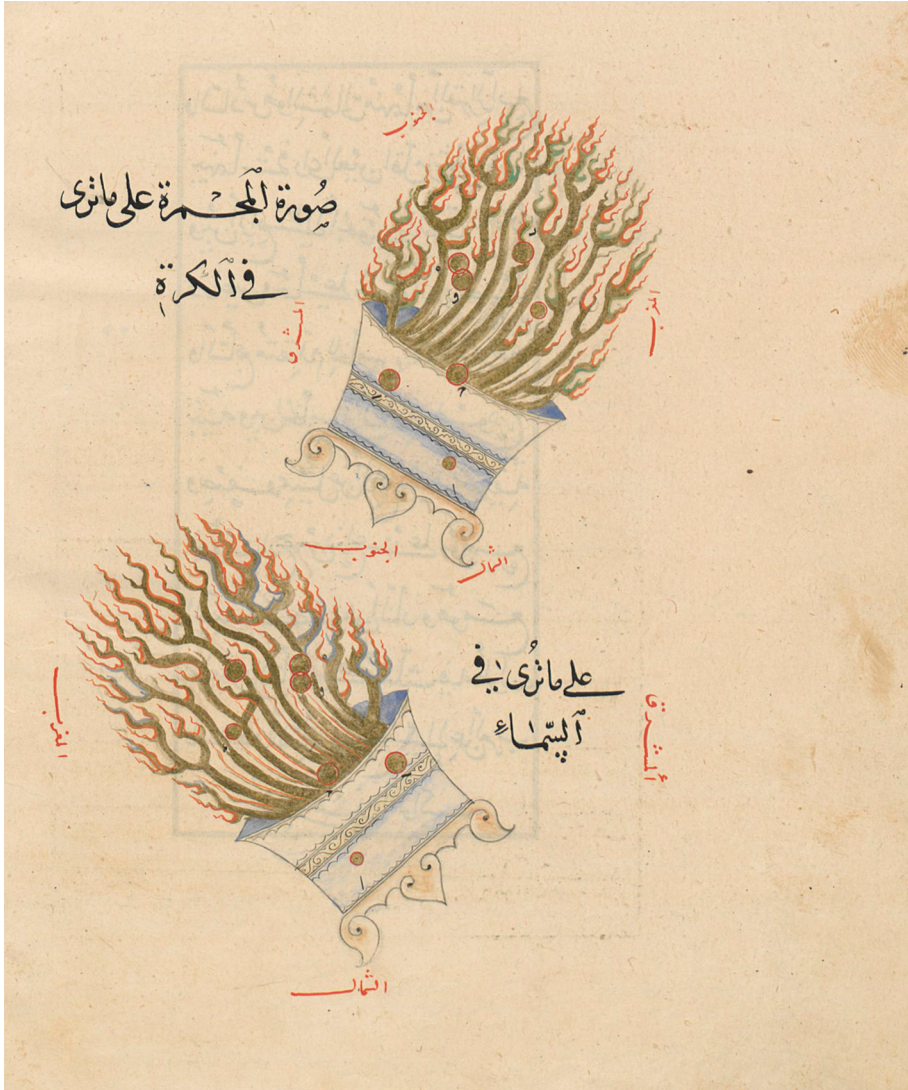 الجنوب
صُورة المجمرة على ما ترى
في الكرة
المشرق
المغرب
الشمال
الجنوب
على ما تُرى في
السَّماءِ
المشرق
المغرب
الشمال